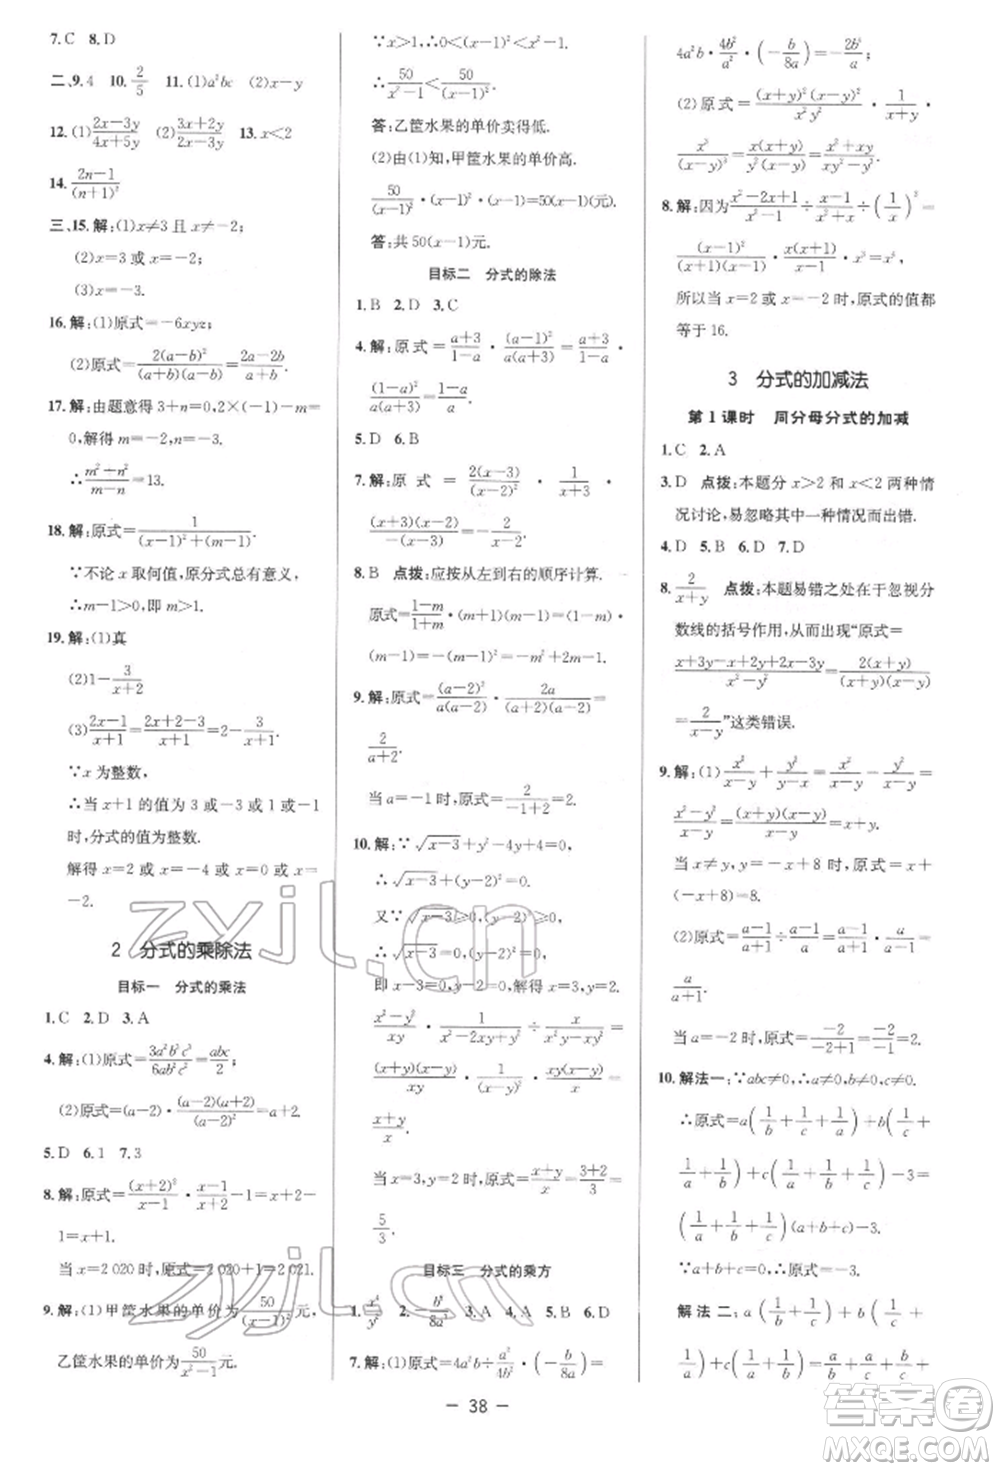 7. C  8. D
二、9. 4  10. 2/5  11. (1)a²bc  (2)x−y
12. (1)(2x−3y)/(4x+5y)  (2)(3x+2y)/(2x−3y)  13. x<2
14. (2n−1)/(n+1)²
三、15. 解:(1)x≠3 且 x≠−2;
(2)x=3 或 x=−2;
(3)x=−3.
16. 解:(1)原式=−6xyz;
(2)原式=2(a−b)²/((a+b)(a−b))=(2a−2b)/(a+b).
17. 解:由题意得 3+n=0,2×(−1)+m=
0,解得 m=2,n=−3.
=13.
18. 解:原式=1/((x−1)²+(m−1)).
∵不论 x 取何值,原分式总有意义,
∴m−1>0,即 m>1.
19. 解:(1)真
(2)1−3/(x+2)
(3)(2x−1)/(x+1)=(2(x+1)−3)/(x+1)=2−3/(x+1).
∵x 为整数,
∴当 x+1 的值为 3 或 −3 或 1 或 −1
时,分式的值为整数.
解得 x=2 或 x=−4 或 x=0 或 x=
−2.
2 分式的乘除法
目标一 分式的乘法
1. C  2. D  3. A
4. 解:(1)原式=3a²b²c³/6ab²c²=abc/2;
(2)原式=(a−2)·(a−2)(a+2)/(a−2)²=a+2.
5. D  6. 1  7. 3
8. 解:原式=(x+2)²/(x−1)·(x−1)/(x+2)−1=x+2−
1=x+1.
当 x=2 020 时,原式=2 020+1=2 021.
9. 解:(1)甲筐水果的单价为50/(x−1)²元,
乙筐水果的单价为50/(x²−1)元.
∵x>1,∴0<(x−1)²<x²−1.
∴50/(x²−1)<50/(x−1)².
答:乙筐水果的单价卖得低.
(2)由(1)知,甲筐水果的单价高.
50/(x−1)²·(x−1)²·(x−1)=50(x−1)(元).
答:共 50(x−1)元.
目标二 分式的除法
1. B  2. D  3. C
4. 解:原式=(a+3)/(1−a)·(a−1)²/(a(a+3))=(a+3)/(1−a)·
(1−a)²/(a(a+3))=(1−a)/a.
5. D  6. B
7. 解:原式=2(x−3)/(x−2)²·1/(x+3)·
(x+3)(x−2)/(−(x−3))=−2/(x−2).
8. B 点拨:应按从左到右的顺序计算.
原式=(1−m)/(1+m)·(m+1)(m−1)=(1−m)·
(m−1)=−(m−1)²=−m²+2m−1.
9. 解:原式=(a−2)²/(a(a−2))·2a/((a+2)(a−2))=
2/(a+2).
当 a=−1 时,原式=2/(−1+2)=2.
10. 解:∵√(x−3)+y²−4y+4=0,
∴√(x−3)+(y−2)²=0.
又∵√(x−3)≥0,(y−2)²≥0,
∴√(x−3)=0,(y−2)²=0,解得 x=3,
y=2.
(x²−y²)/xy·1/(x²−2xy+y²)÷x/(x²y−xy²)=
(x+y)(x−y)/xy·1/(x−y)²·xy(x−y)/x=
(x+y)/x.
当 x=3,y=2 时,原式=(x+y)/x=(3+2)/3=
5/3.
目标三 分式的乘方
3. A  4. A  5. B  6. D
7. 解:(1)原式=4a²b÷a²/4b²·(−b/8a)=
4a²b·4b²/a²·(−b/8a)=−2b⁴/a;
(2)原式=(x+y)²(x−y)²/x²y²·1/(x+y)·
x³/(x−y)³=(x²+xy)/(xy²−y³).
8. 解:因为(x²−2x+1)/(x²−1)÷(x−1)/(x+1)÷(1/x)⁴=
(x−1)²/((x+1)(x−1))·(x+1)/(x−1)·x⁴=x⁴,
所以当 x=2 或 x=−2 时,原式的值都
等于 16.
3 分式的加减法
第 1 课时 同分母分式的加减
1. C  2. A
3. D 点拨:本题分 x>2 和 x<2 两种情
况讨论,易忽略其中一种情况而出错.
4. D  5. B  6. D  7. D
8. 2/(x+y) 点拨:本题易错之处在于忽视分
数线的括号作用,出现“原式=
(x+3y−x−y)/(x²−y²)=2(x+y)/((x+y)(x−y))
=2/(x−y)”这类错误.
9. 解:(1)x²/(x−y)+y²/(y−x)=x²/(x−y)−y²/(x−y)=
(x²−y²)/(x−y)=(x+y)(x−y)/(x−y)=x+y.
当 x≠y,y=−x+8 时,原式=x+
(−x+8)=8.
当 a=−2 时,原式=(−2−1)/(−2+1)=−3/−1=3.
10. 解法一:∵abc≠0,∴a≠0,b≠0,c≠0.
∴原式=a(1/b+1/c)+1+b(1/a+
1/c)+1+c(1/a+1/b)+1−3=
(1/a+1/b+1/c)·(a+b+c)−3.
∵a+b+c=0,∴原式=−3.
解法二:原式=a(1/b+1/c)+
− 38 −
zyjl.cn
答案圈
MXQE.COM